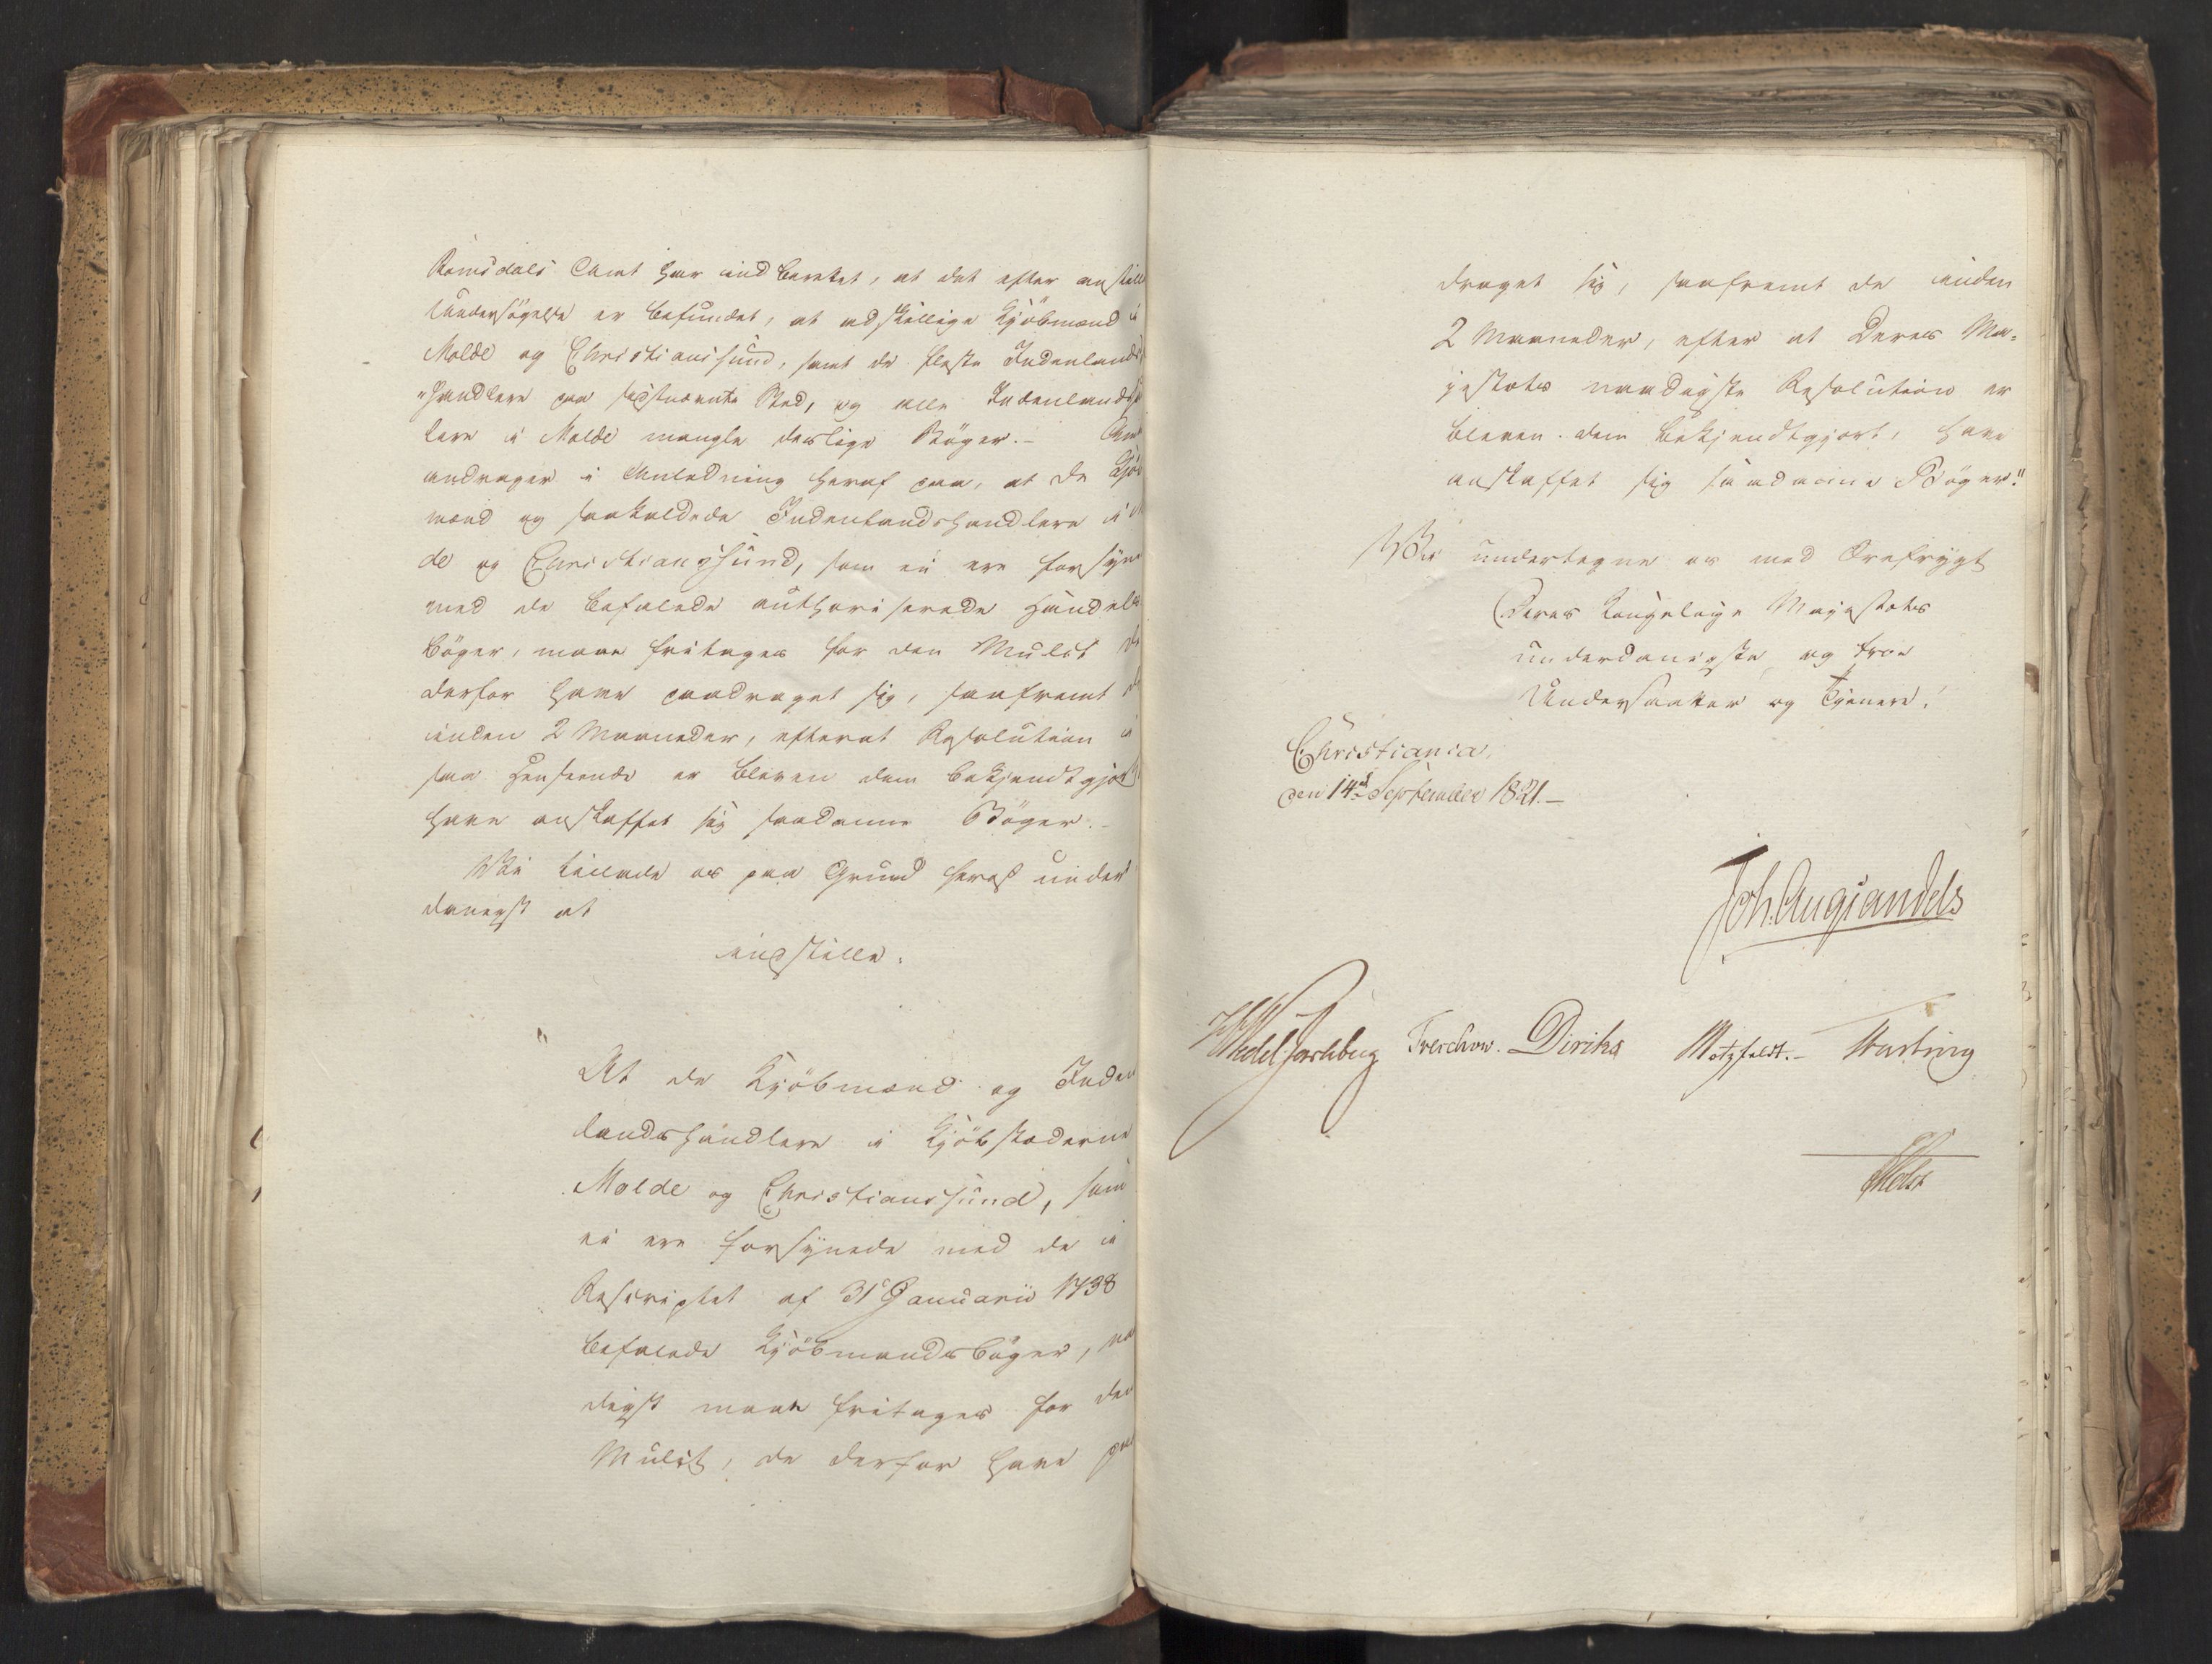 Romsdals Amt har indberettet, at det efter anstillet
Undersøgelse er befundet, at adskillige Kjøbmænd i
Molde og Christianssund, samt de fleste Indenlands-
handlere paa sidstnævnte Sted, og alle Indenlands
lere i Molde mangle deslige Bøger. –
andrager i Anledning heraf paa, at de Kjøb
mænd og saakaldede Indenlandshandlere i
de og Christianssund, som ei ere forsyne
med de befalede authoriserede Handels
bøger, maae fritages for den Mulct de
derfor have paadraget sig, saafremt de
inden 2 Maaneder, efterat Resolution i
saa Henseende er bleven dem bekjendtgjort,
have anskaffet sig saadanne Bøger. –
Vi tillade os paa Grund heraf under
danigst at
indstille:
"At de Kjøbmænd og Inden
landshandlere i Kjøbstæderne
Molde og Christianssund, som
ei ere forsynede med de i
Rescriptet af 31 Januarii 1738
befalede Kjøbmandsbøger, naa
digst maae fritages for den
Mulct, de derfor have paa
draget sig, saafremt de inden
2 Maaneder, efter at Deres Ma-
jestæts naadigste Resolution er
bleven dem bekjendtgjort, have
anskaffet sig saadanne Bøger."
Vi undertegne os med Ærefrygt
Deres Kongelige Majestæts
underdanigste og troe
Undersaatter og Tjenere.
Christiania,
den 14d September 1821. –
Joh. Aug Sandels
HWedel Jarlsberg Treschow. Diriks Motzfeldt. – 
Holst